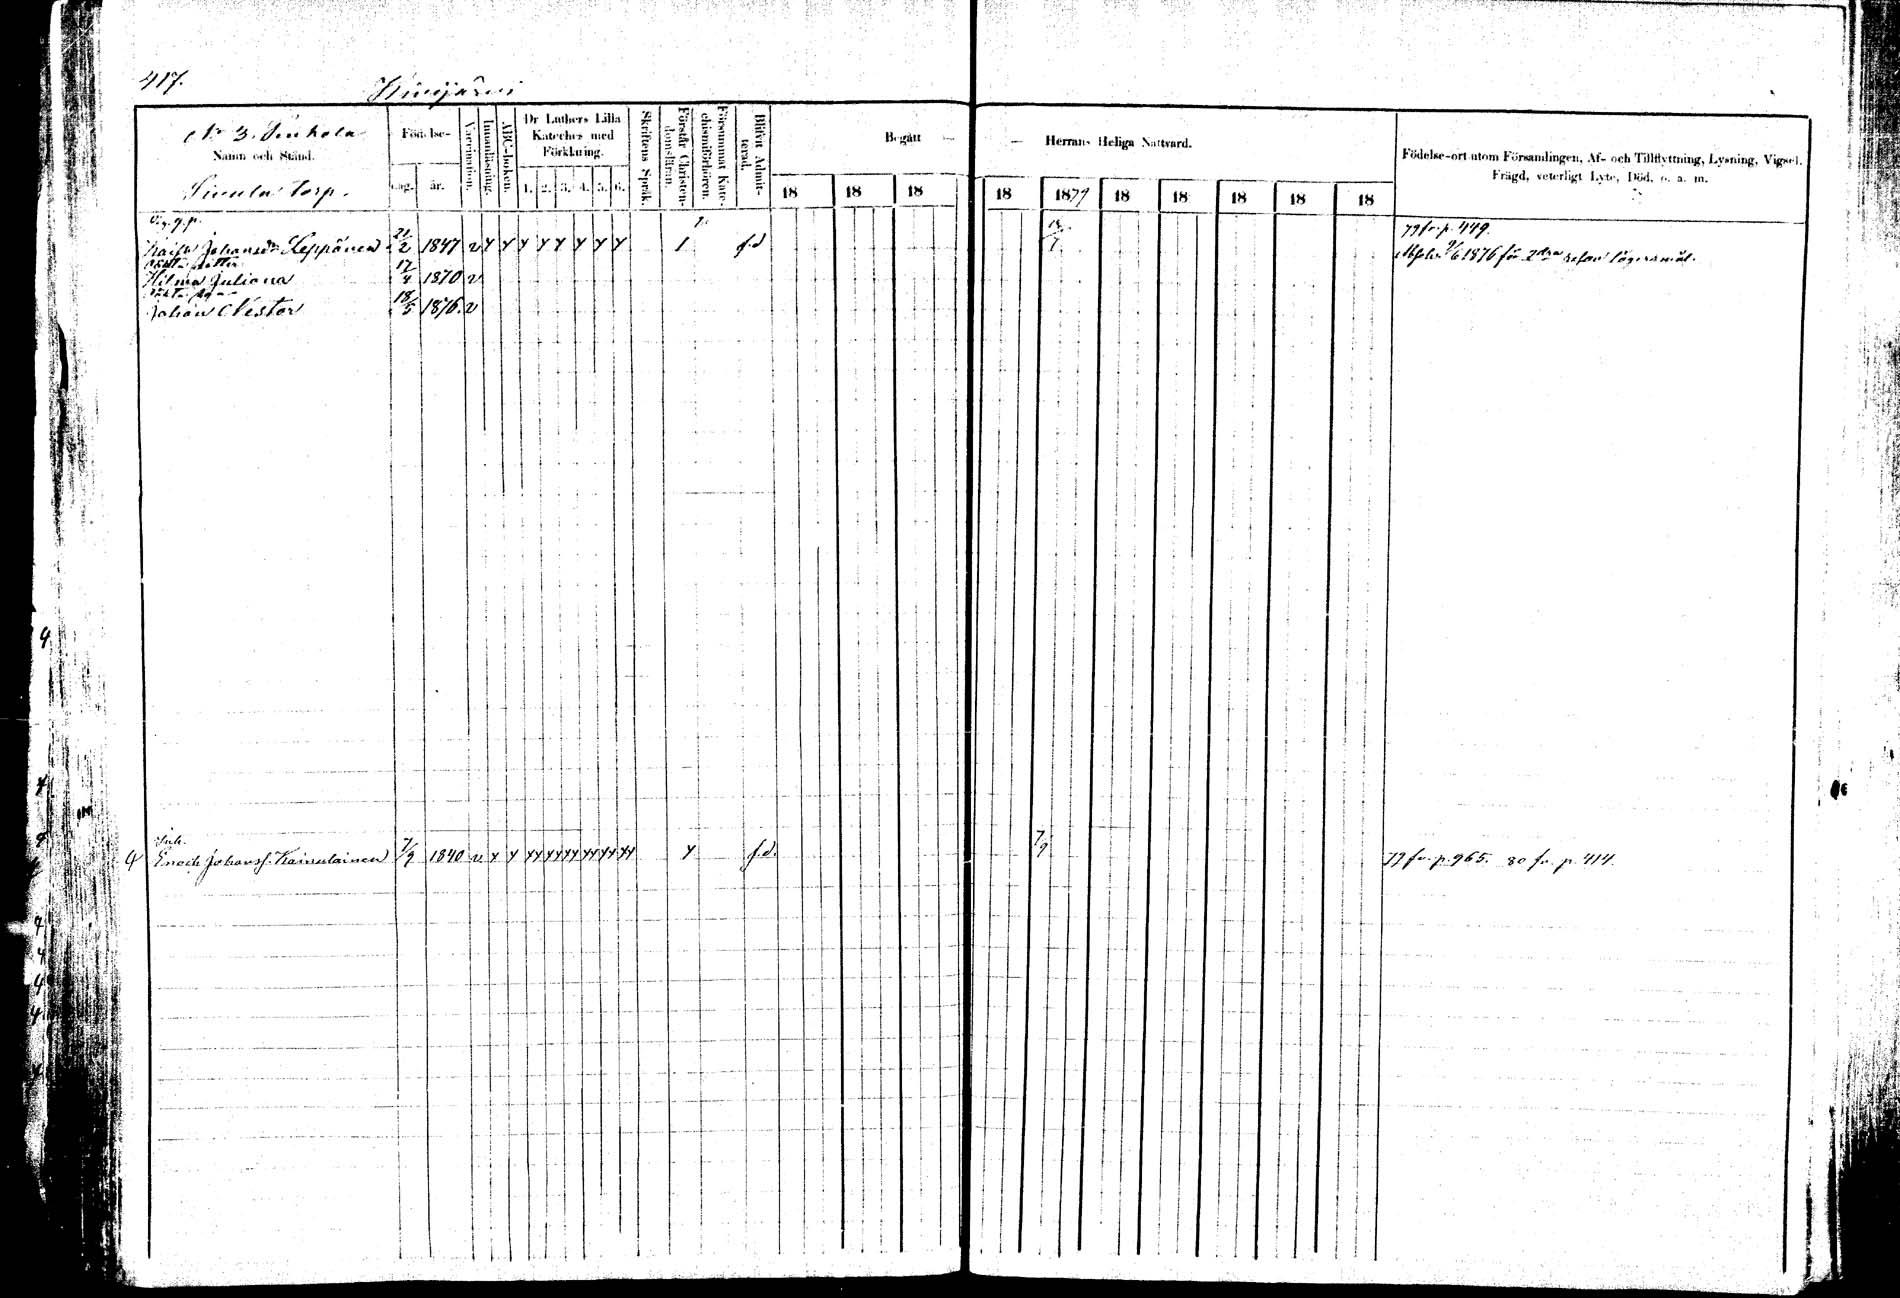 417.
Kinijärvi
No 3. Penhola
Namn och Stånd.
Födelse-
dag. år.
Vaccination.
Innanläsning.
ABC-boken.
Dr Luthers Lilla
Kateches med
Förklaring.
1. 2. 3. 4. 5. 6.
Skriftens Språk.
Förstår Christen-
domsläran.
Försummat Kate-
chismiförhören.
Blifvit Admit-
terad.
Begått — — Herrans Heliga Nattvard.
18 18 18 18 1879 18 18 18 18 18
Födelse-ort utom Församlingen, Af- och Tillflyttning, Lysning, Vigsel,
Frägd, veterligt Lyte, Död, o. a. m.
torp.
79 fr. p. 449.
Johansdr Leppänen 21/2 1847 v f.d
1876 för 2dra resan lägersmål.
Hilma Juliana 17/4 1870 v
Johan Nestor 18/5 1876. v
Inh.
Enoch Johanss. Kainulainen 7/9 1840 v f.d. 7/9 79 fr. p. 965. 80 fr. p. 414.